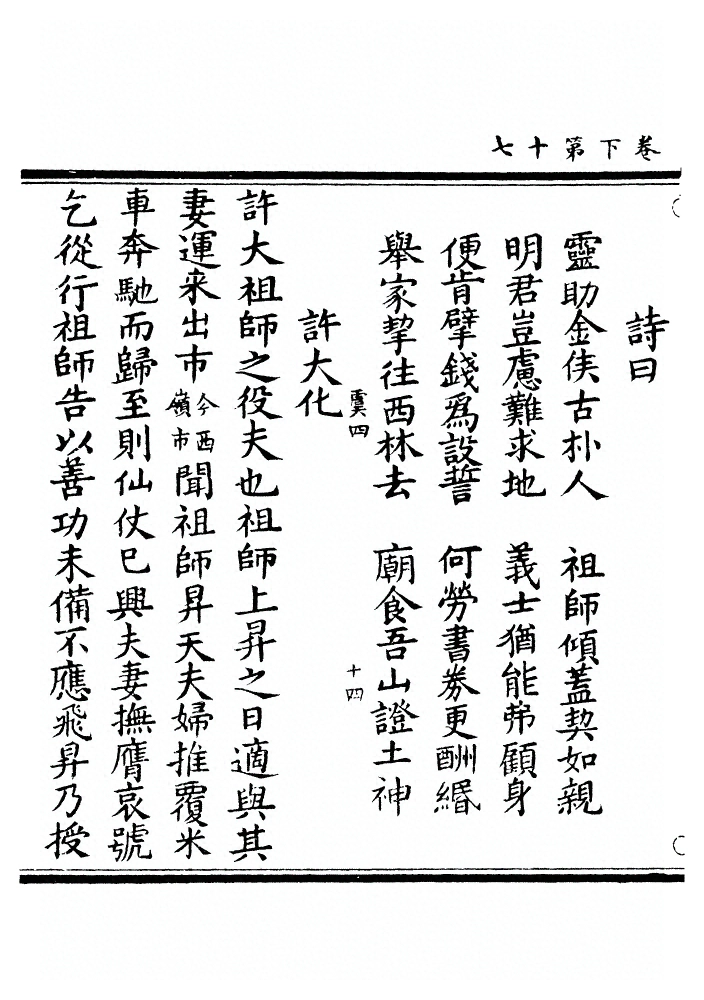 卷下第十七
詩曰
靈助金侯古朴人　祖師傾蓋契如親
明君豈慮難求地　義士猶能弗顧身
便肯擘錢爲設誓　何勞書券更酬緡
舉家挈往西林去　廟食吾山證土神
虞四　十四
許大化
許大祖師之役夫也祖師上昇之日適與其
妻運米出市今西嶺市聞祖師昇天夫婦推覆米
車奔馳而歸至則仙仗已興夫妻撫膺哀號
乞從行祖師告以善功未備不應飛昇乃授